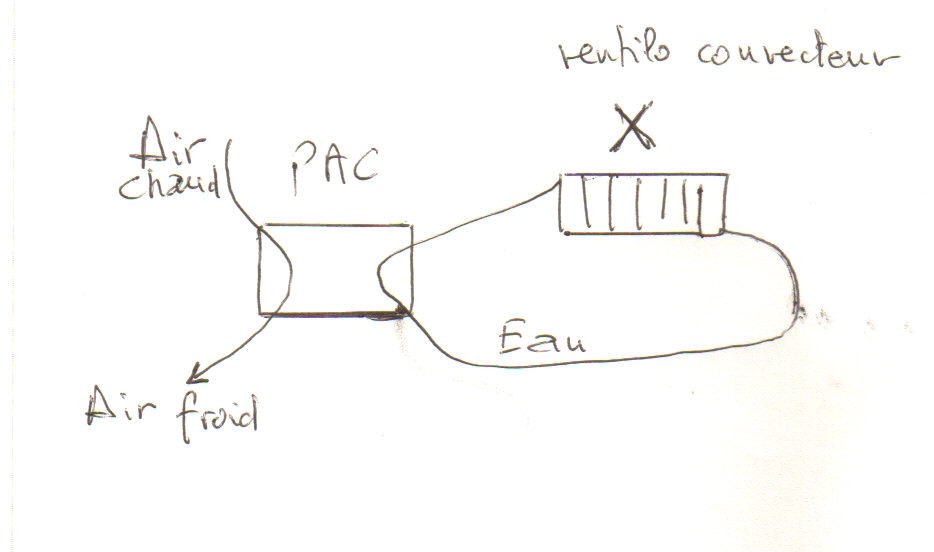 ventilo convecteur
Air
chaud
PAC
Eau
Air froid